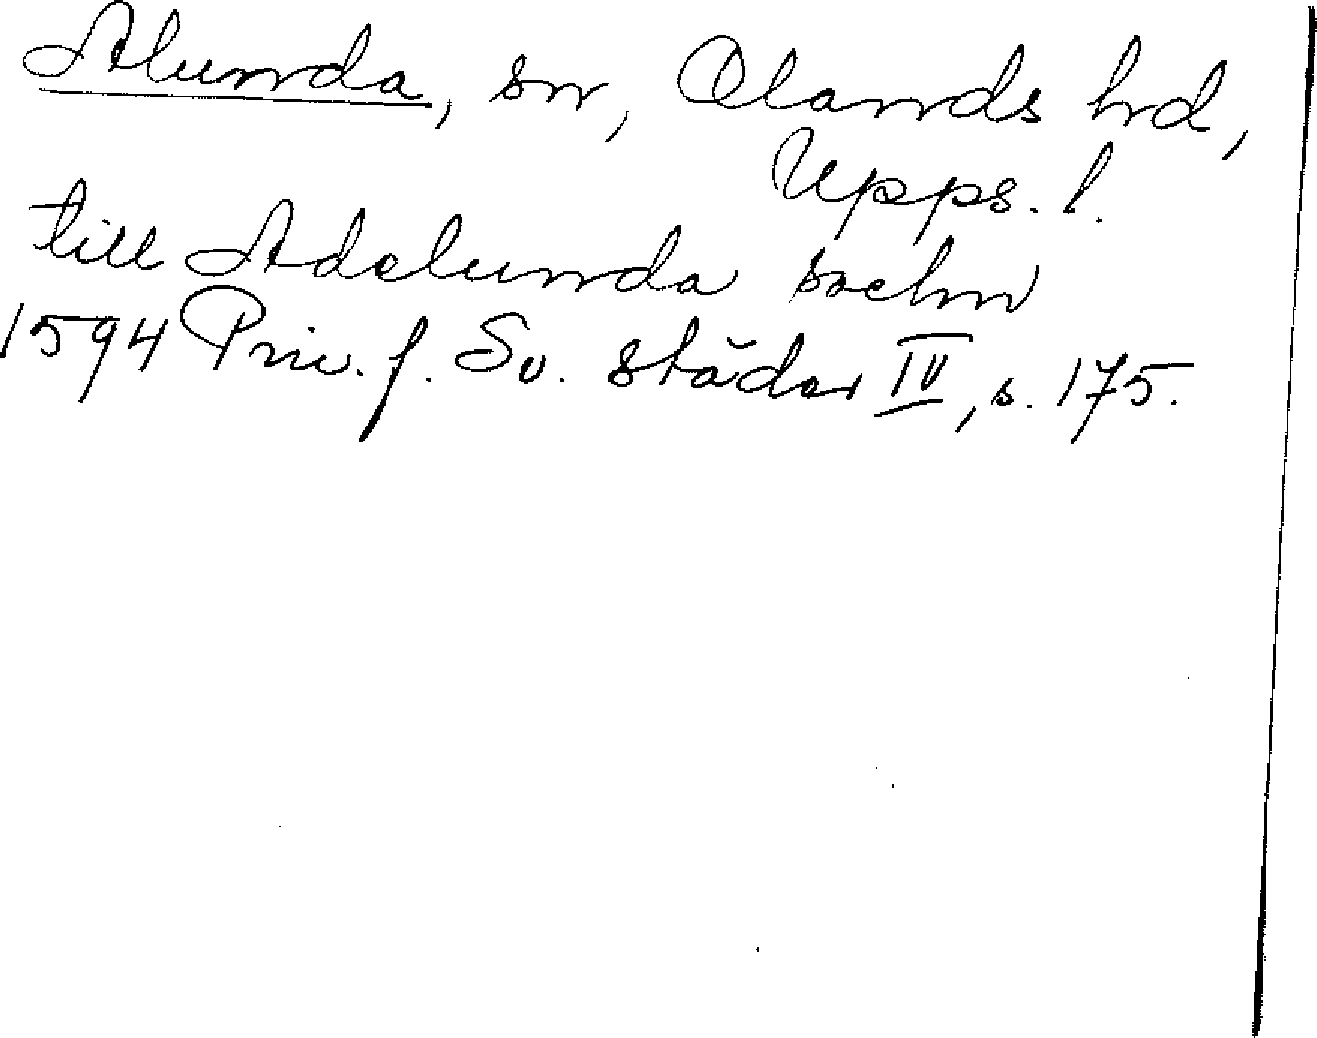 Alunda, sn, Olands hd,
Upps. l.
till Adelunda sochn
1594 Priv. f. Sv. städer IV, s. 175.